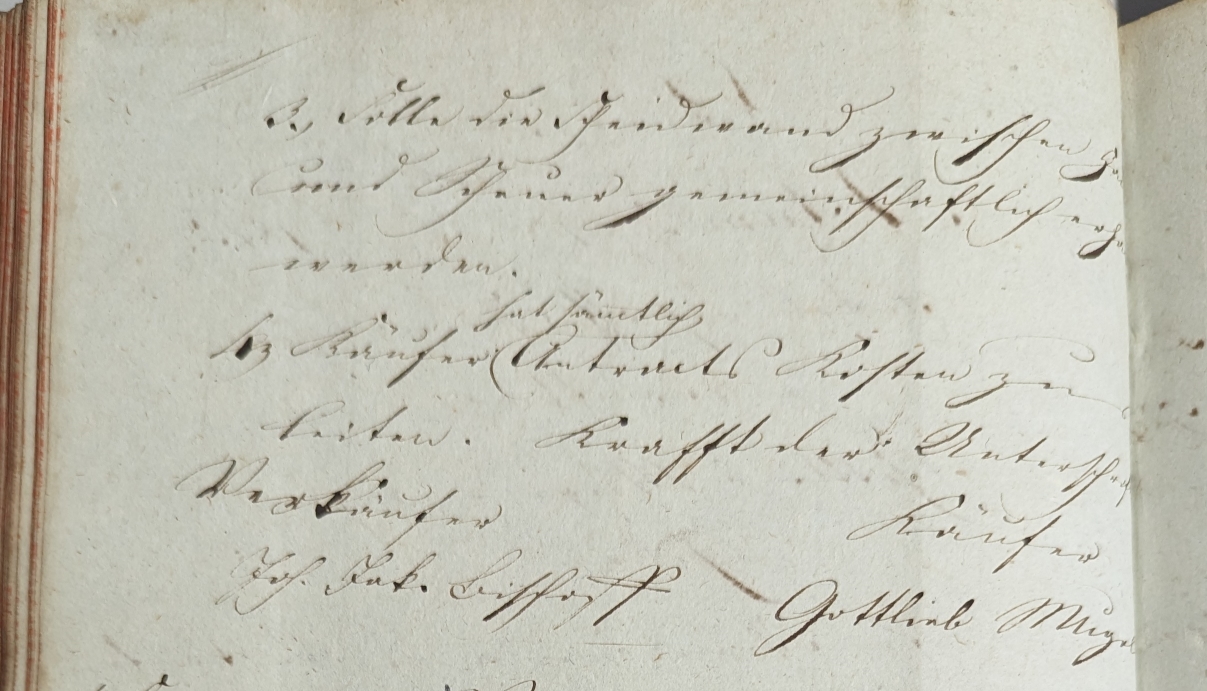 3., Solle die Scheidwand zwischen
und Scheuer gemeinschaftlich
werden.
hat sämtlich
Käufer Contracts Kosten zu
leiten. Krafft der Unterschr
Verkäufer
Käufer
Joh. Jak. Bischoff
Gottlieb